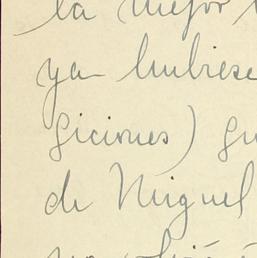 la mejor
ya hubiese
giciones) gu
de Miguel